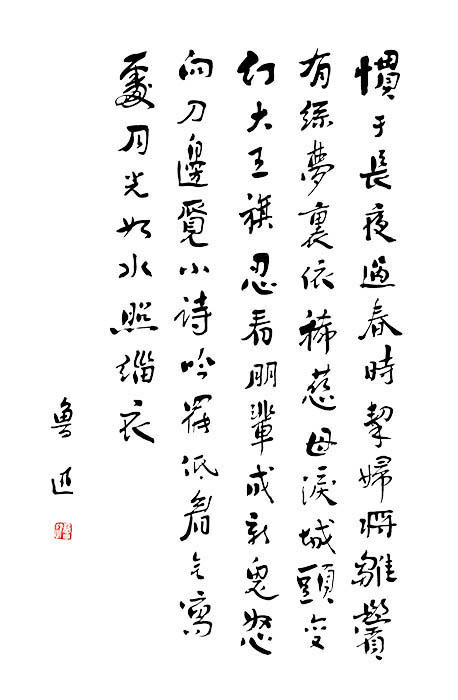 慣于長夜過春時挈婦將雛鬢
有絲夢裏依稀慈母淚城頭变
幻大王旗忍看朋輩成新鬼怒
向刀邊覓小詩吟罷低眉无寫
處月光如水照緇衣
魯迅